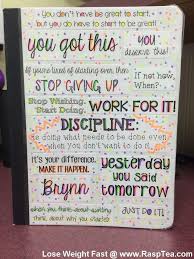 you don't have be great to start.
but you do have to start to be great!
you got this
you
deserve this!
If you're tired of starting over then
STOP GIVING UP
If not now.
When?
Stop Wishing.
Start Doing.
WORK FOR IT!
DISCIPLINE:
doing what needs to be done even
when you don't want to do it.
It's your difference.
MAKE IT HAPPEN.
yesterday
you said
tomorrow
Brynn
when you think about quitting
think about why you started!
JUST DO IT!
Lose Weight Fast @ www.RaspTea.com